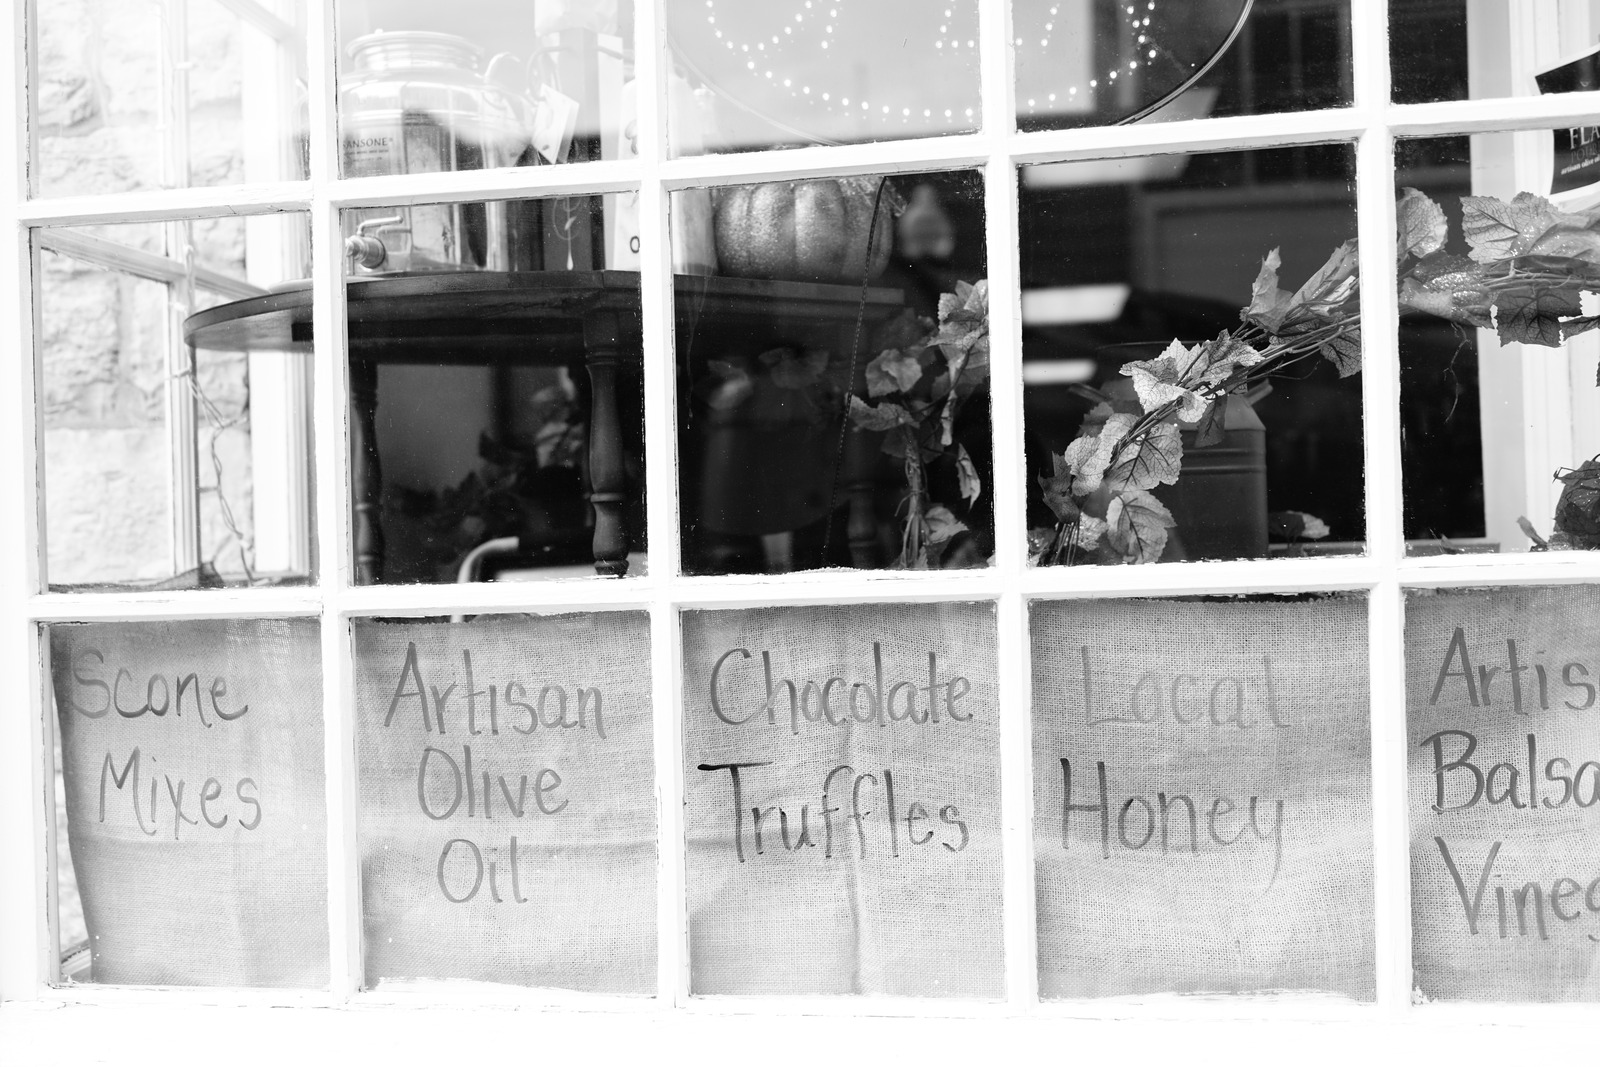 SANSONE
Scone
Mixes
Artisan
Olive
Oil
Chocolate
Truffles
Local
Honey
Artis
Balsa
Vineg